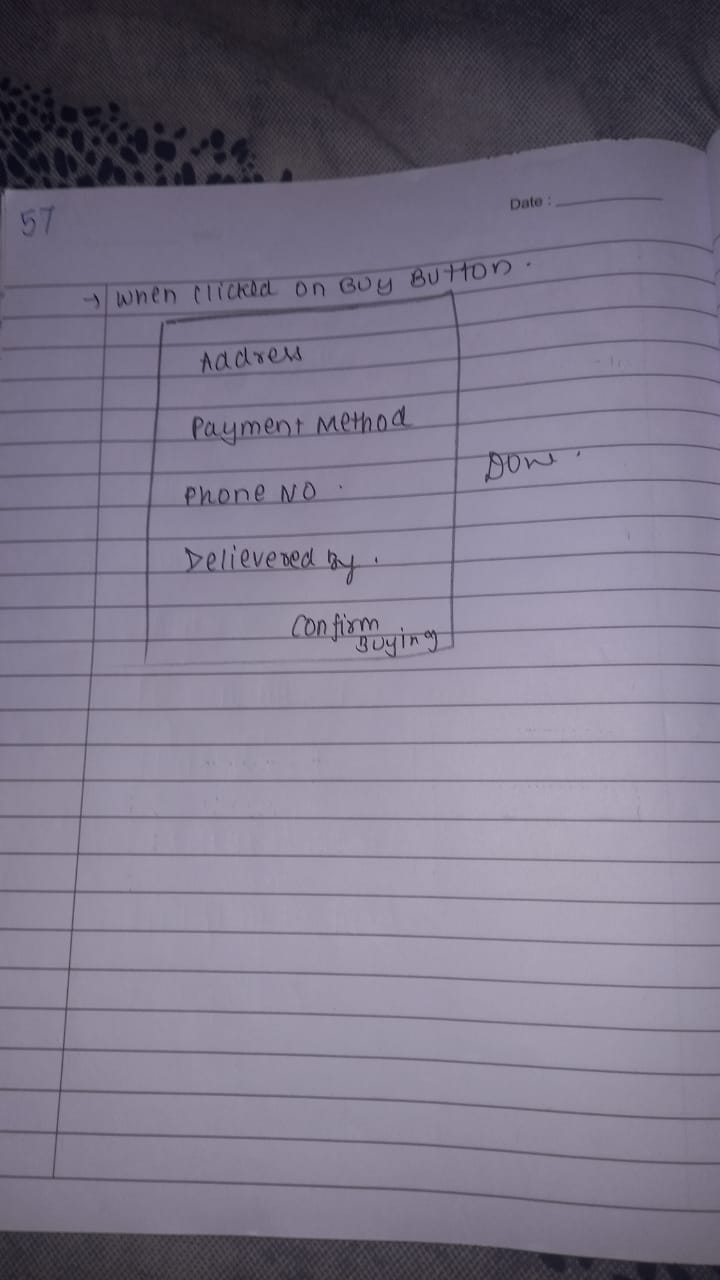 57
Date :
→ When clicked on Buy Button.
Address
Payment Method
Phone No.
Delievered by.
Done.
Confirm
Buying